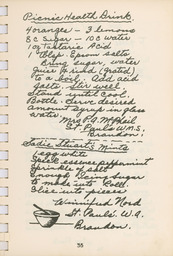 Picnic Health Drink.
4 oranges - 3 lemons
8 c Sugar - 10 c water
1 oz Tartaric Acid
1 tblsp. Epsom salts
Bring sugar, water
juice & rind (grated)
to a boil. Add acid
salts. Stir well.
Stand until cool.
Bottle. Serve desired
amount syrup in glass
water.
Mrs. P. A. McPhail
St. Paul's W.M.S.
Brandon.
Sadie Stuart's Mints
1 egg white
essence peppermint
Sprinkle of salt
Enough Icing Sugar
to make into Roll.
Slice into pieces
Winnifred Nord
St. Pauls' W.A.
Brandon.